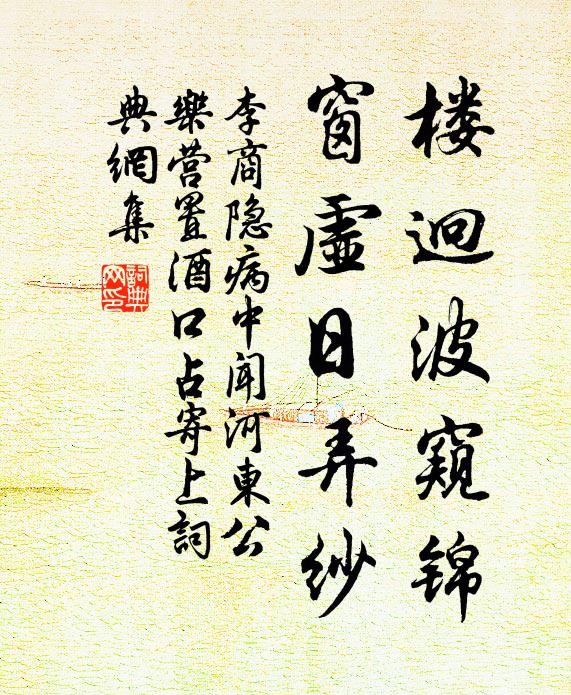 楼迥波窥锦
窗虚日弄纱
李商隐病中闻河东公
乐营置酒口占寄上词
典网集
词典网印